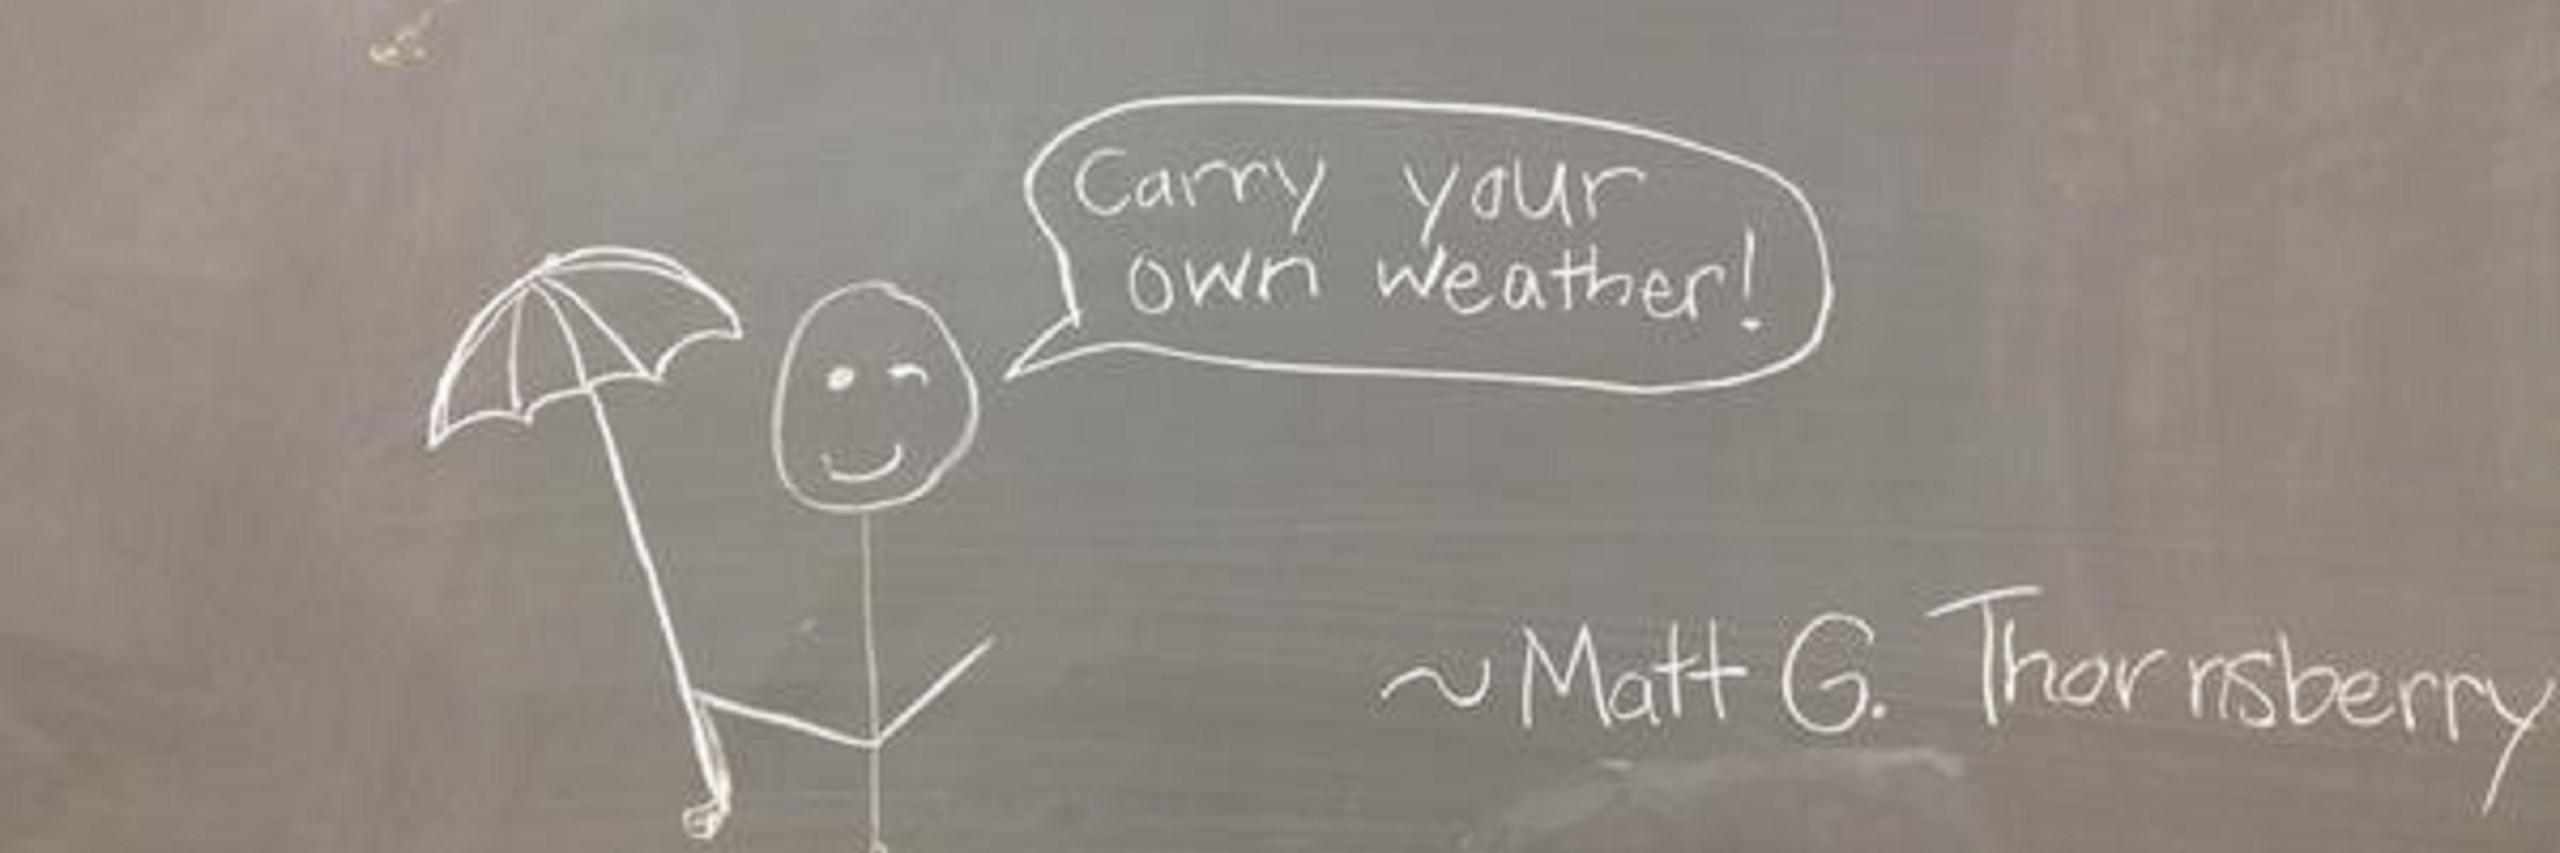 Carry your
own weather!
~Matt G. Thornsberry